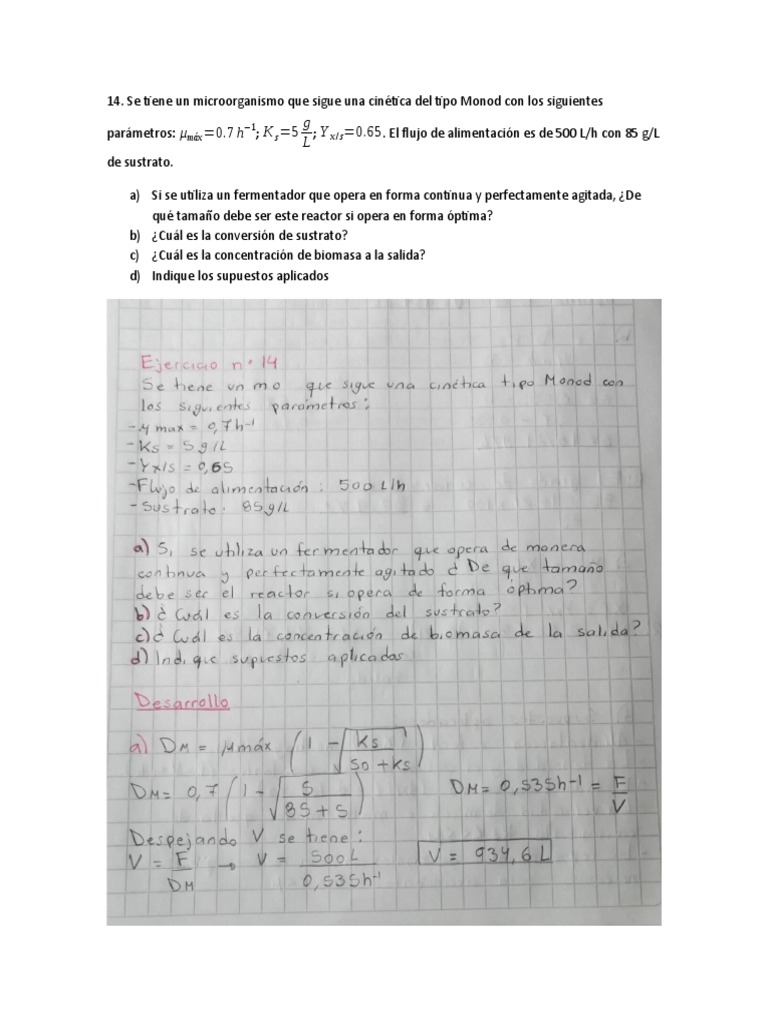 14. Se tiene un microorganismo que sigue una cinética del tipo Monod con los siguientes
parámetros: μmáx=0.7 h⁻¹; Ks=5 g/L; Yx/s=0.65. El flujo de alimentación es de 500 L/h con 85 g/L
de sustrato.
a) Si se utiliza un fermentador que opera en forma continua y perfectamente agitada, ¿De
qué tamaño debe ser este reactor si opera en forma óptima?
b) ¿Cuál es la conversión de sustrato?
c) ¿Cuál es la concentración de biomasa a la salida?
d) Indique los supuestos aplicados
Ejercicio n°14
Se tiene un mo que sigue una cinética tipo Monod con
los siguientes parámetros:
-μ max = 0,7 h⁻¹
-Ks = 5 g/L
-Yx/s = 0,65
-Flujo de alimentación: 500 L/h
-Sustrato: 85g/L
a) Si se utiliza un fermentador que opera de manera
continua y perfectamente agitado ¿ De que tamaño
debe ser el reactor si opera de forma óptima?
b) ¿ Cuál es la conversión del sustrato?
c) ¿ Cuál es la concentración de biomasa de la salida?
d) Indique supuestos aplicados
Desarrollo
a) DM = μmáx (1 - √(Ks / So + Ks))
DM = 0,7 (1 - √(5 / 85 + 5)) DM = 0,535h⁻¹ = F/V
Despejando V se tiene:
V = F/DM → V = 500L / 0,535h⁻¹ V = 934,6 L